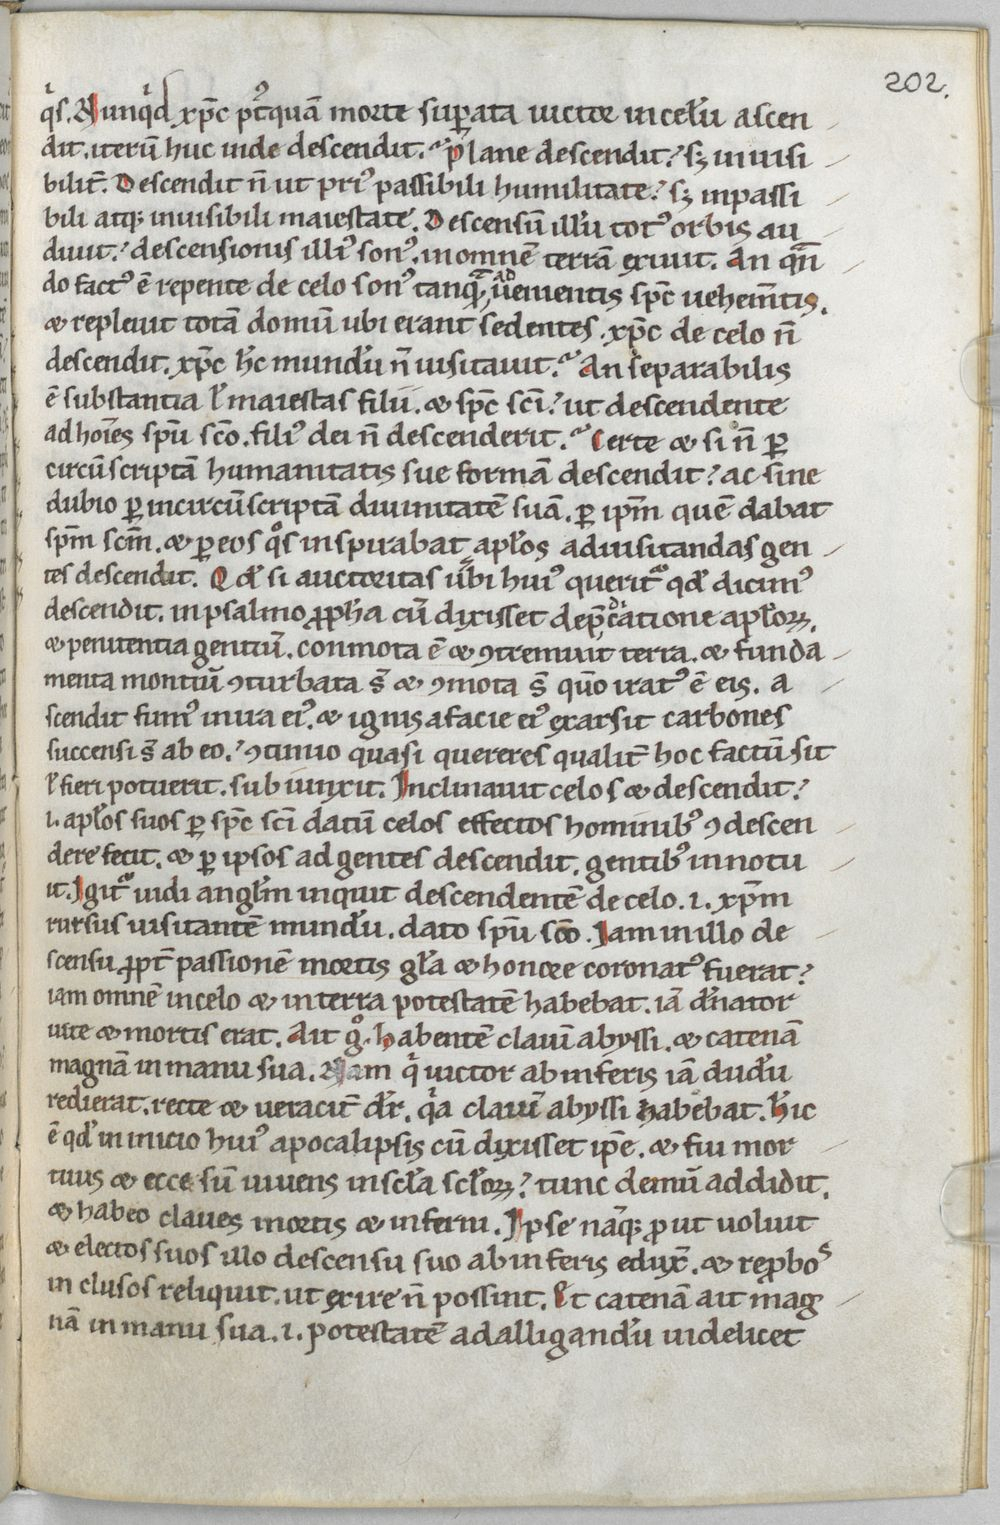 202.
q̍s. Nunq̍d xp̄c pt̄ꝰquā morte suꝑata uictor in celū ascen
dit. iterū huc inde descendit. Plane descendit. sꝫ inuisi
bilit̄. Descendit n̄ ut priꝰ passibili humilitate. sꝫ inpassi
bili atqꝫ inuisibili maiestate. Descensū illū totꝰ orbis au
diuit. descensionis illiꝰ sonꝰ. in omnē terrā exiuit. An qn̄
do factꝰ ē repente de celo sonꝰ tanquā aduenientis sp̄c uehem̄tis.
⁊ repleuit totā domū ubi erant sedentes. xp̄c de celo n̄
descendit. xp̄c hc̄ mundū n̄ uisitauit. An separabilis
ē substantia ł maiestas filii. ⁊ sp̄c sc̄i. ut descendente
ad hoīes sp̄u sc̄o. filiꝰ dei n̄ descenderit. Certe ⁊ si n̄ ꝑ
circūscriptā humanitatis sue formā descendit. ac sine
dubio ꝑ incircūscriptā diuinitatē suā. ꝑ ip̄m quē dabat
sp̄m sc̄m. ⁊ ꝑ eos qͦs inspirabat apłos ad uisitandas gen
tes descendit. Qd̄ si auctoritas ūbi huiꝰ querit᷑ qd̄ dicimꝰ
descendit. in psalmo ꝓpħa cū dixisset de p̄dicatione apłoꝝ.
⁊ penitentia gentiū. conmota ē ⁊ ꝯtremuit terra. ⁊ funda
menta montiū ꝯturbata s̄ ⁊ ꝯmota s̄ qūo iratꝰ ē eis. a
scendit fumꝰ in ira eiꝰ. ⁊ ignis a facie eiꝰ exarsit carbones
succensi s̄ ab eo. ꝯtinuo quasi quereres qualit̄ hoc factū sit
ł fieri potuerit. subiunxit. Inclinauit celos ⁊ descendit.
.i. apłos suos ꝑ sp̄c sc̄i datū celos effectos hominibꝰ ꝯdescen
dere fecit. ⁊ ꝑ ipsos ad gentes descendit. gentibꝰ innotu
it. Igit᷑ uidi angłm inquit descendentē de celo. .i. xp̄m
rursus uisitantē mundū. dato sp̄u sc̄o. Iam in illo de
scensu ꝓpt̄ passionē mortis gła ⁊ honore coronatꝰ fuerat.
iam omnē in celo ⁊ in terra potestatē habebat. iā dn̄ator
uite ⁊ mortis erat. Ait gͦ. habentē clauī abyssi. ⁊ catenā
magnā in manu sua. Nam q̍ uictor ab inferis iā dudū
redierat. recte ⁊ ueracit̄ dr̄. q̍a clauī abyssi habebat. Hic
ē qd̄ in inicio huiꝰ apocalipsis cū dixisset ip̄e. ⁊ fui mor
tuus ⁊ ecce sū uiuens in scła scłoꝝ. tunc demū addidit.
⁊ habeo claues mortis ⁊ inferni. Ipse nāqꝫ ꝓut uoluit
⁊ electos suos illo descensu suo ab inferis edux̄. ⁊ reꝓbos
inclusos reliquit. ut exire n̄ possint. Et catenā ait mag
nā in manu sua. .i. potestatē ad alligandū uidelicet